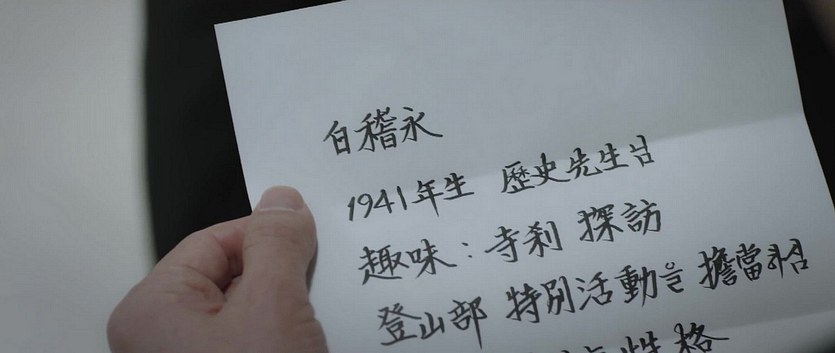 白稽永
1941年生 歷史先生님
趣味 : 寺刹 探訪
登山部 特別活動을 擔當하심
性格